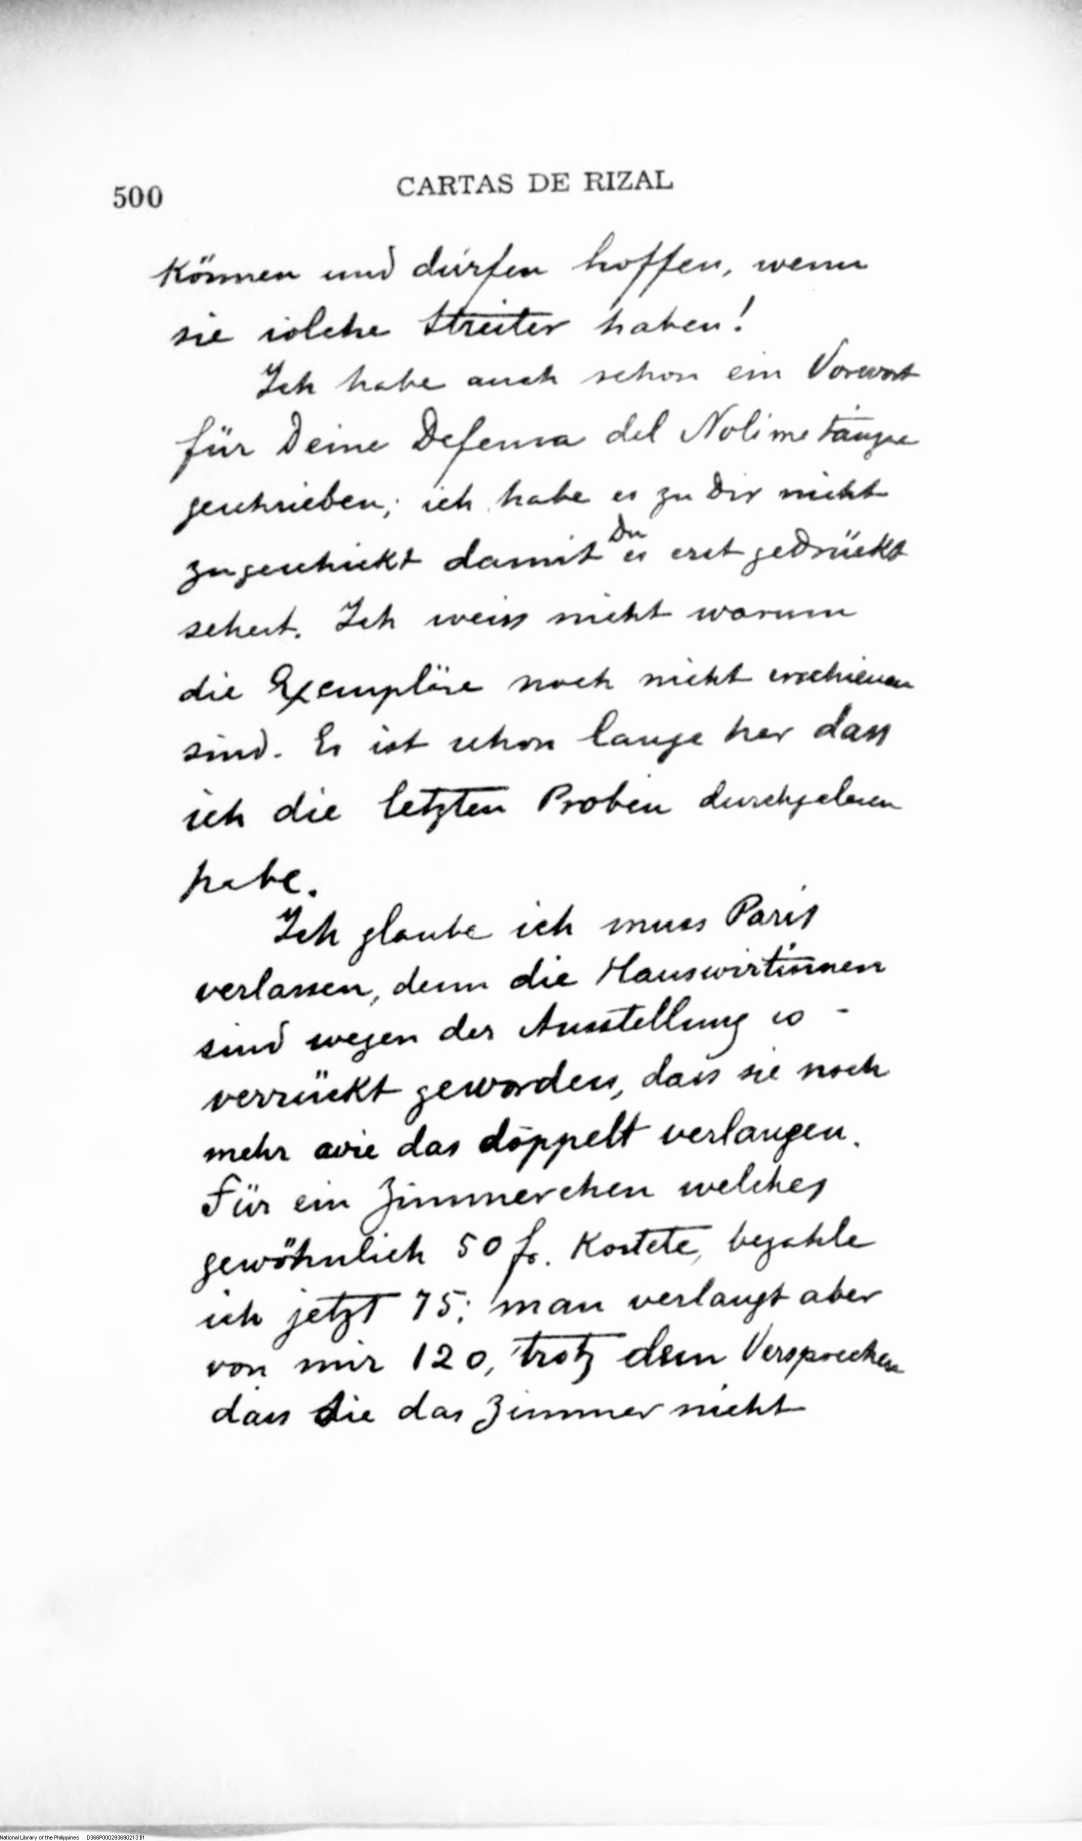 500
CARTAS DE RIZAL
können und dürfen hoffen, wenn
sie solche Streiter haben!
Ich habe auch schon ein Vorwort
für Deine Defensa del Noli me tangere
geschrieben; ich habe es zu Dir nicht
zugeschickt damit Du es erst gedrückt
sehest. Ich weiss nicht warum
die Exempläre noch nicht erschienen
sind. Es ist schon lange her dass
ich die letzten Proben durchgelesen
habe.
Ich glaube ich muss Paris
verlassen, denn die Hauswirtinnen
sind wegen der Ausstellung so -
verrückt geworden, dass sie noch
mehr wie das döppelt verlangen.
Für ein Zimmerchen welches
gewöhnlich 50 fr. kostete, bezahle
ich jetzt 75; man verlangt aber
von mir 120, trotz dem Versprechen
dass Sie das Zimmer nicht
National Library of the Philippines